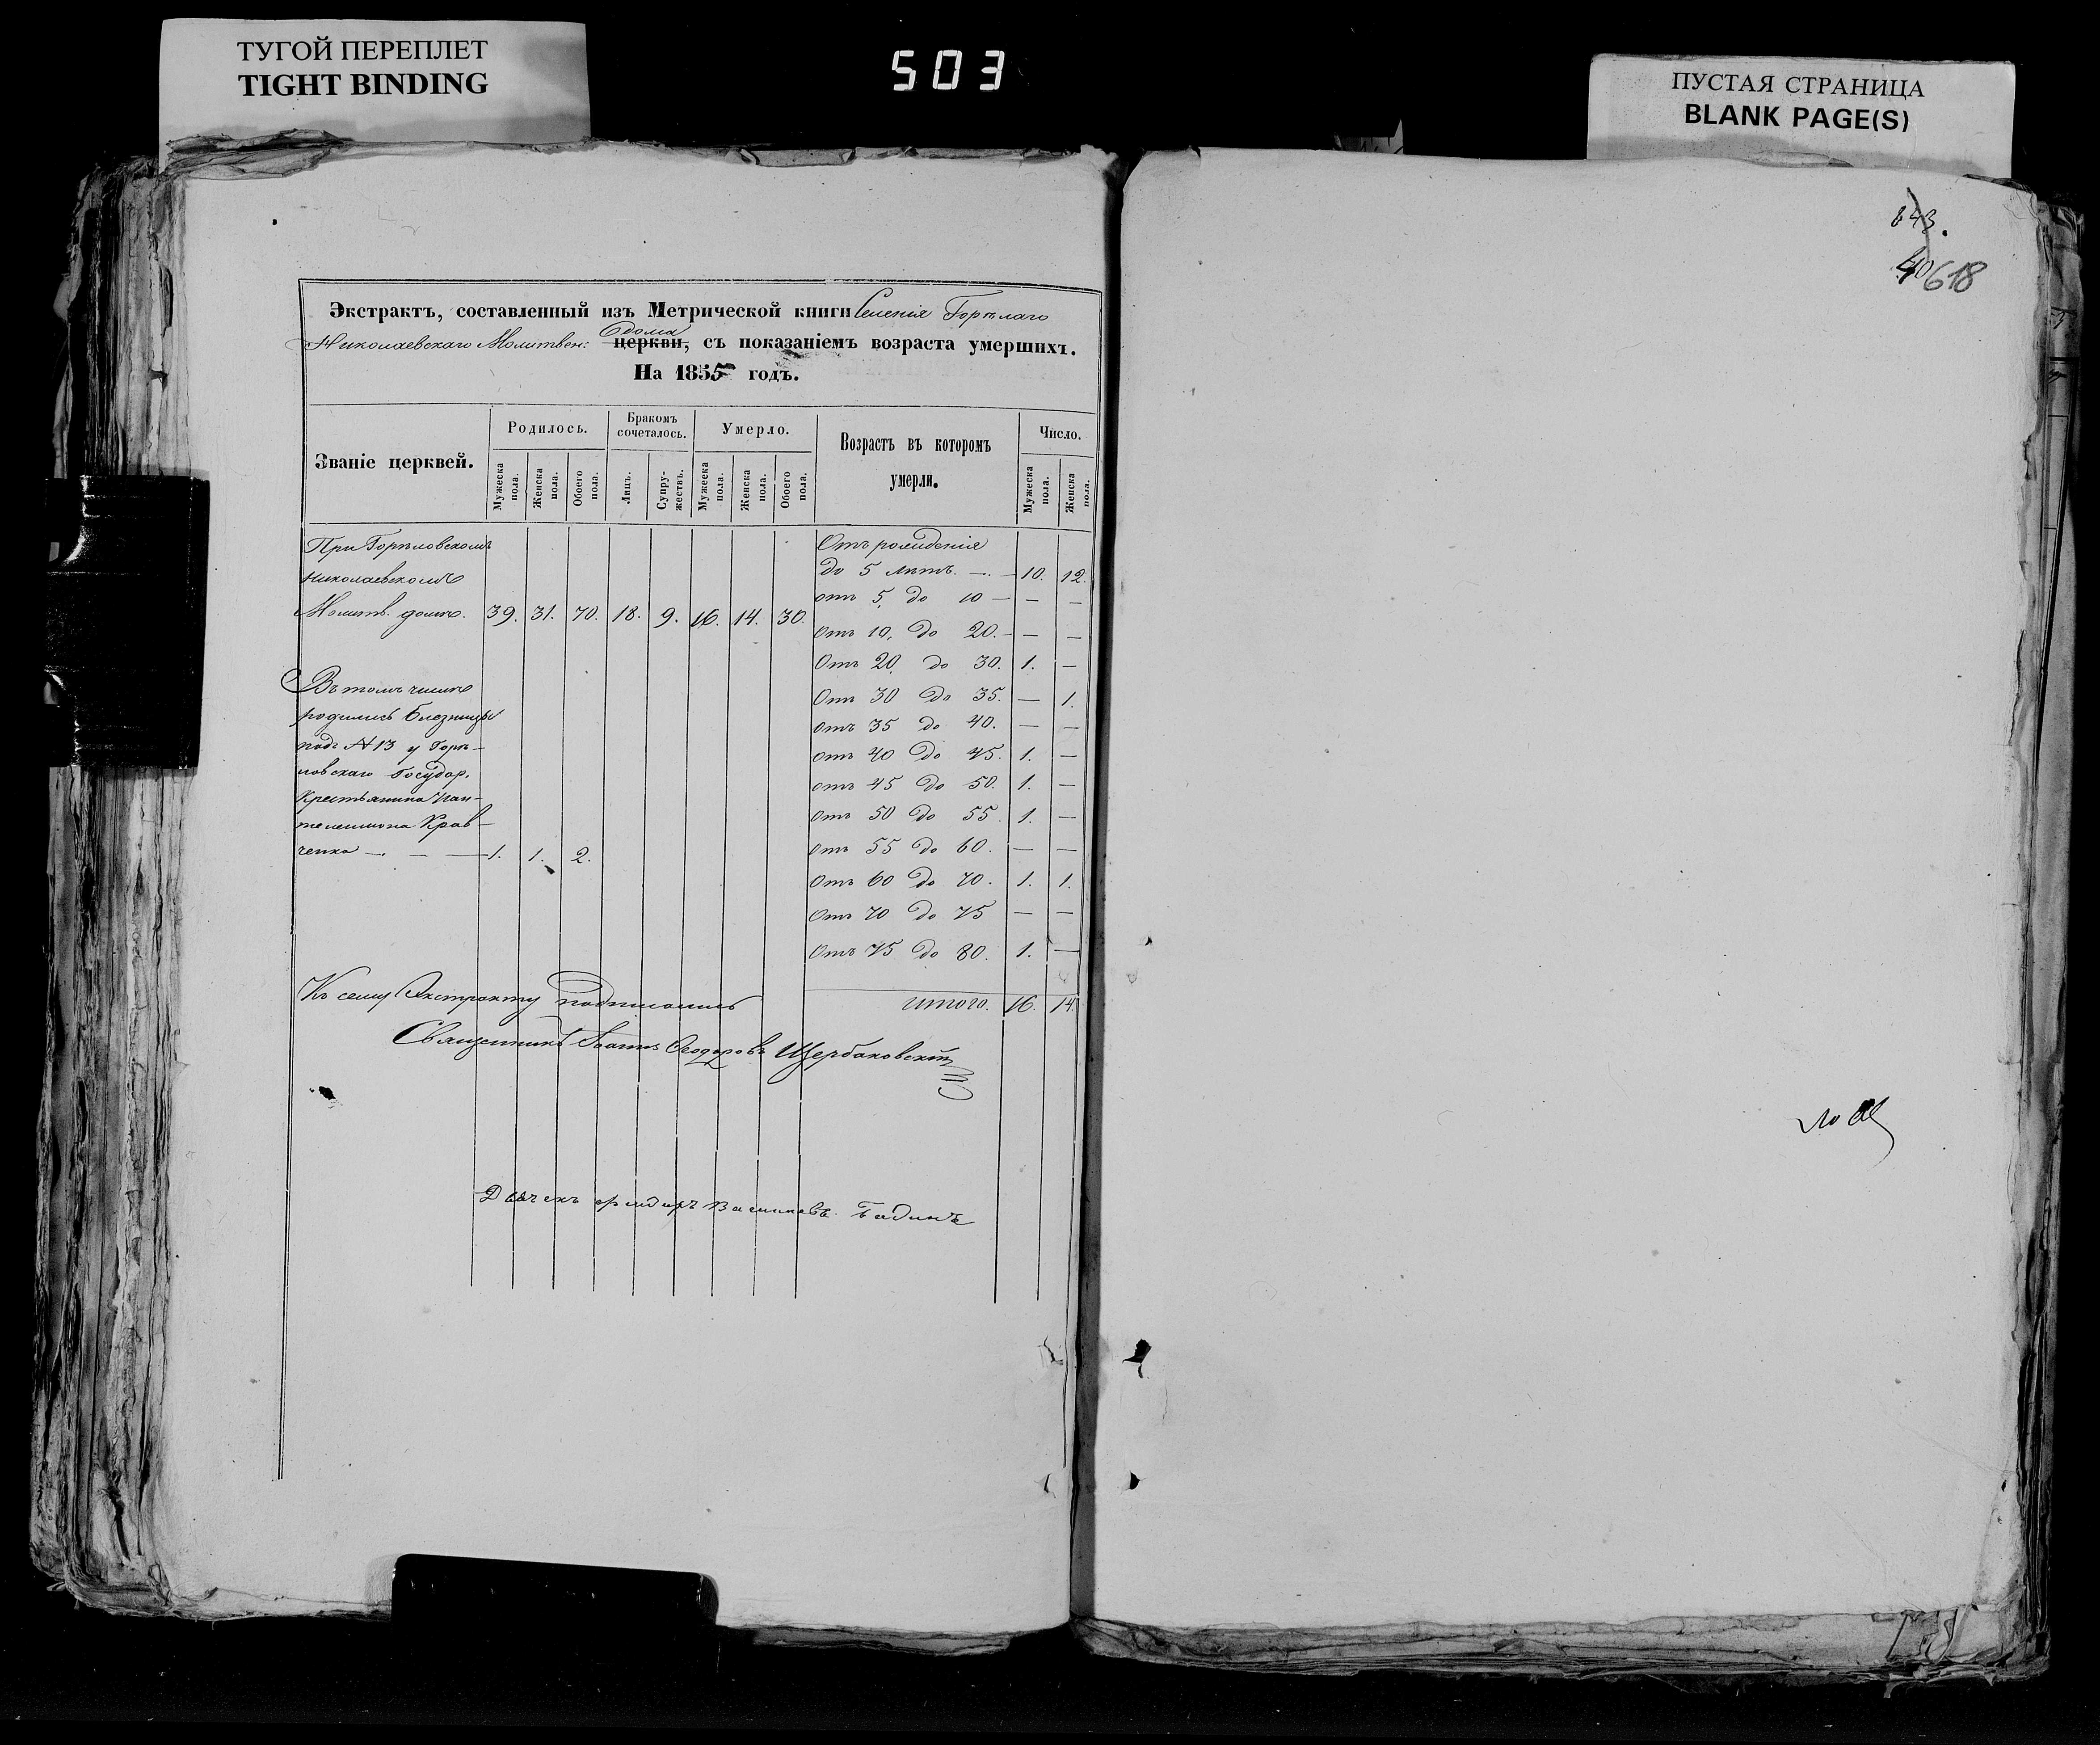 ТУГОЙ ПЕРЕПЛЕТ
TIGHT BINDING
503
ПУСТАЯ СТРАНИЦА
BLANK PAGE(S)
643.
40 618
Экстрактъ, составленный изъ Метрической книги Селенія Горѣлаго
Николаевскаго Молитвен: дома церкви, съ показаніемъ возраста умершихъ.
На 1855 годъ.
Званіе церквей.
Родилось.
Бракомъ сочеталось.
Умерло.
Возрастъ въ которомъ умерли.
Число.
Мужеска пола.
Женска пола.
Обоего пола.
Лицъ.
Супружествъ.
Мужеска пола.
Женска пола.
Обоего пола.
Мужеска пола.
Женска пола.
При Горѣловскомъ
Николаевскомъ
Молитв. домѣ. 39. 31. 70. 18. 9. 16. 14. 30.
Въ томъ числѣ
родились близницы
подъ № 13 у Горѣ-
ловскаго Государ.
Крестьянина Пан-
телеимона Крав-
ченка — . — — 1. 1. 2.
Отъ рожденія
до 5 лѣтъ. — . — 10. 12.
отъ 5, до 10 — — —
Отъ 10, до 20. — — —
Отъ 20, до 30. 1. —
Отъ 30 до 35. — 1.
отъ 35 до 40. — —
отъ 40 до 45. 1. —
отъ 45 до 50. 1. —
отъ 50 до 55. 1. —
отъ 55 до 60. — —
Отъ 60 до 70. 1. 1.
Отъ 70 до 75 — —
Отъ 75 до 80. 1. —
Итого. 16. 14.
Къ сему Экстракту подписались
Священникъ Іоаннъ Ѳеодоровъ Щербаковскій
Дьячекъ Василіевъ